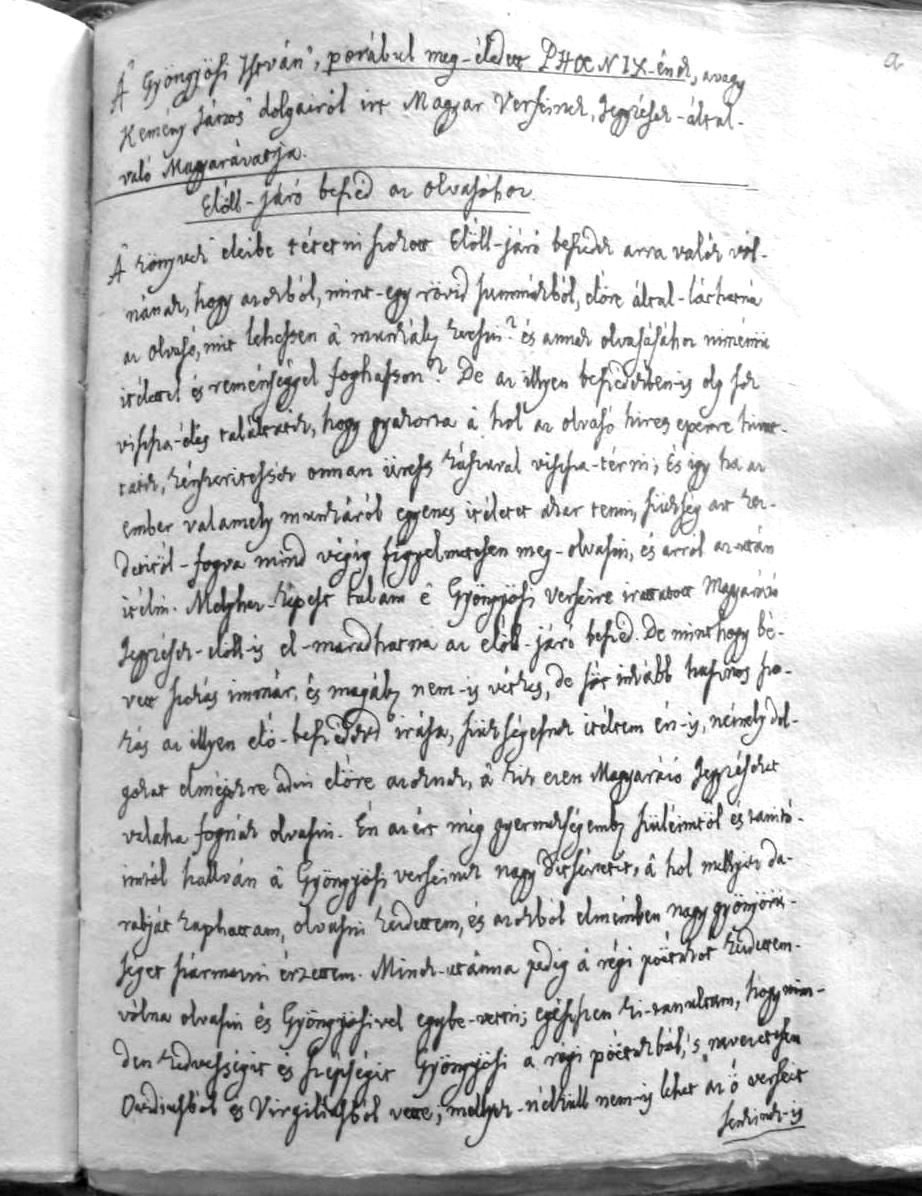 a
A' Gyöngyösi István', porábul meg-éledett PHOENIX-ének, avagy
Kemény János' dolgairól irt Magyar Verseinek, Jegyzések-által-
való Magyarázatja.
Elöll-járó beszéd az olvasóhoz.
A' könyvek' eleibe tétetni szokott Elöll-járó beszédek arra valók vól-
nának, hogy azokból, mint-egy rövid summákból, elöre által-láthatná
az olvasó, mit lehessen a' munkály keresni? és annak olvasásához minémü
itélettel és reménséggel foghasson? De az illyen beszédekben-is oly sok
vissza-élés találtatik, hogy gyakorta a' hol az olvasó hires eperre hivat-
tatik, kénszerittessék onnan üress kosárral vissza-térni; És igy ha az
ember valamely munkáról egyenes itéletet akar tenni, szükség azt kez-
detitöl-fogva mind végig figyelmetesen meg-olvasni, és arról az-után
itélni. Melyhez-képest talám e' Gyöngyösi Verseire irattatott Magyarázó
Jegyzések-elött-is el-maradhatna az elöll-járó beszéd. De minthogy bé-
vett szokás immár, és magáb nem-is vétkes, de sőt inkább hasznos szo-
kás az illyen elö-beszédek' irása, szükségesnek itéltem én-is, némely dol-
gokat elméjekre adni elöre azoknak, a' kik ezen Magyarázó Jegyzéseket
valaha fognák olvasni. Én azért még gyermekségemb szüleimtöl és tanitó-
imtól hallván a' Gyöngyösi verseinek nagy ditséretit, a' hol mellyik da-
rabját kaphattam, olvasni kezdettem, és azokból elmémben nagy gyönyörü-
séget származni érzettem. Minek-utánna pedig a' régi poëtákot kezdettem-
vólna olvasni és Gyöngyösivel egybe-vetni; egészszen ki-tanultam, hogy min-
den kedvességit és szépségit Gyöngyösi a' régi poëtákból, 's nevezetesen
Ovidiusból és Virgiliusból vette; mellyek-nélkült nem-is lehet az ö verseit
senkinek-is